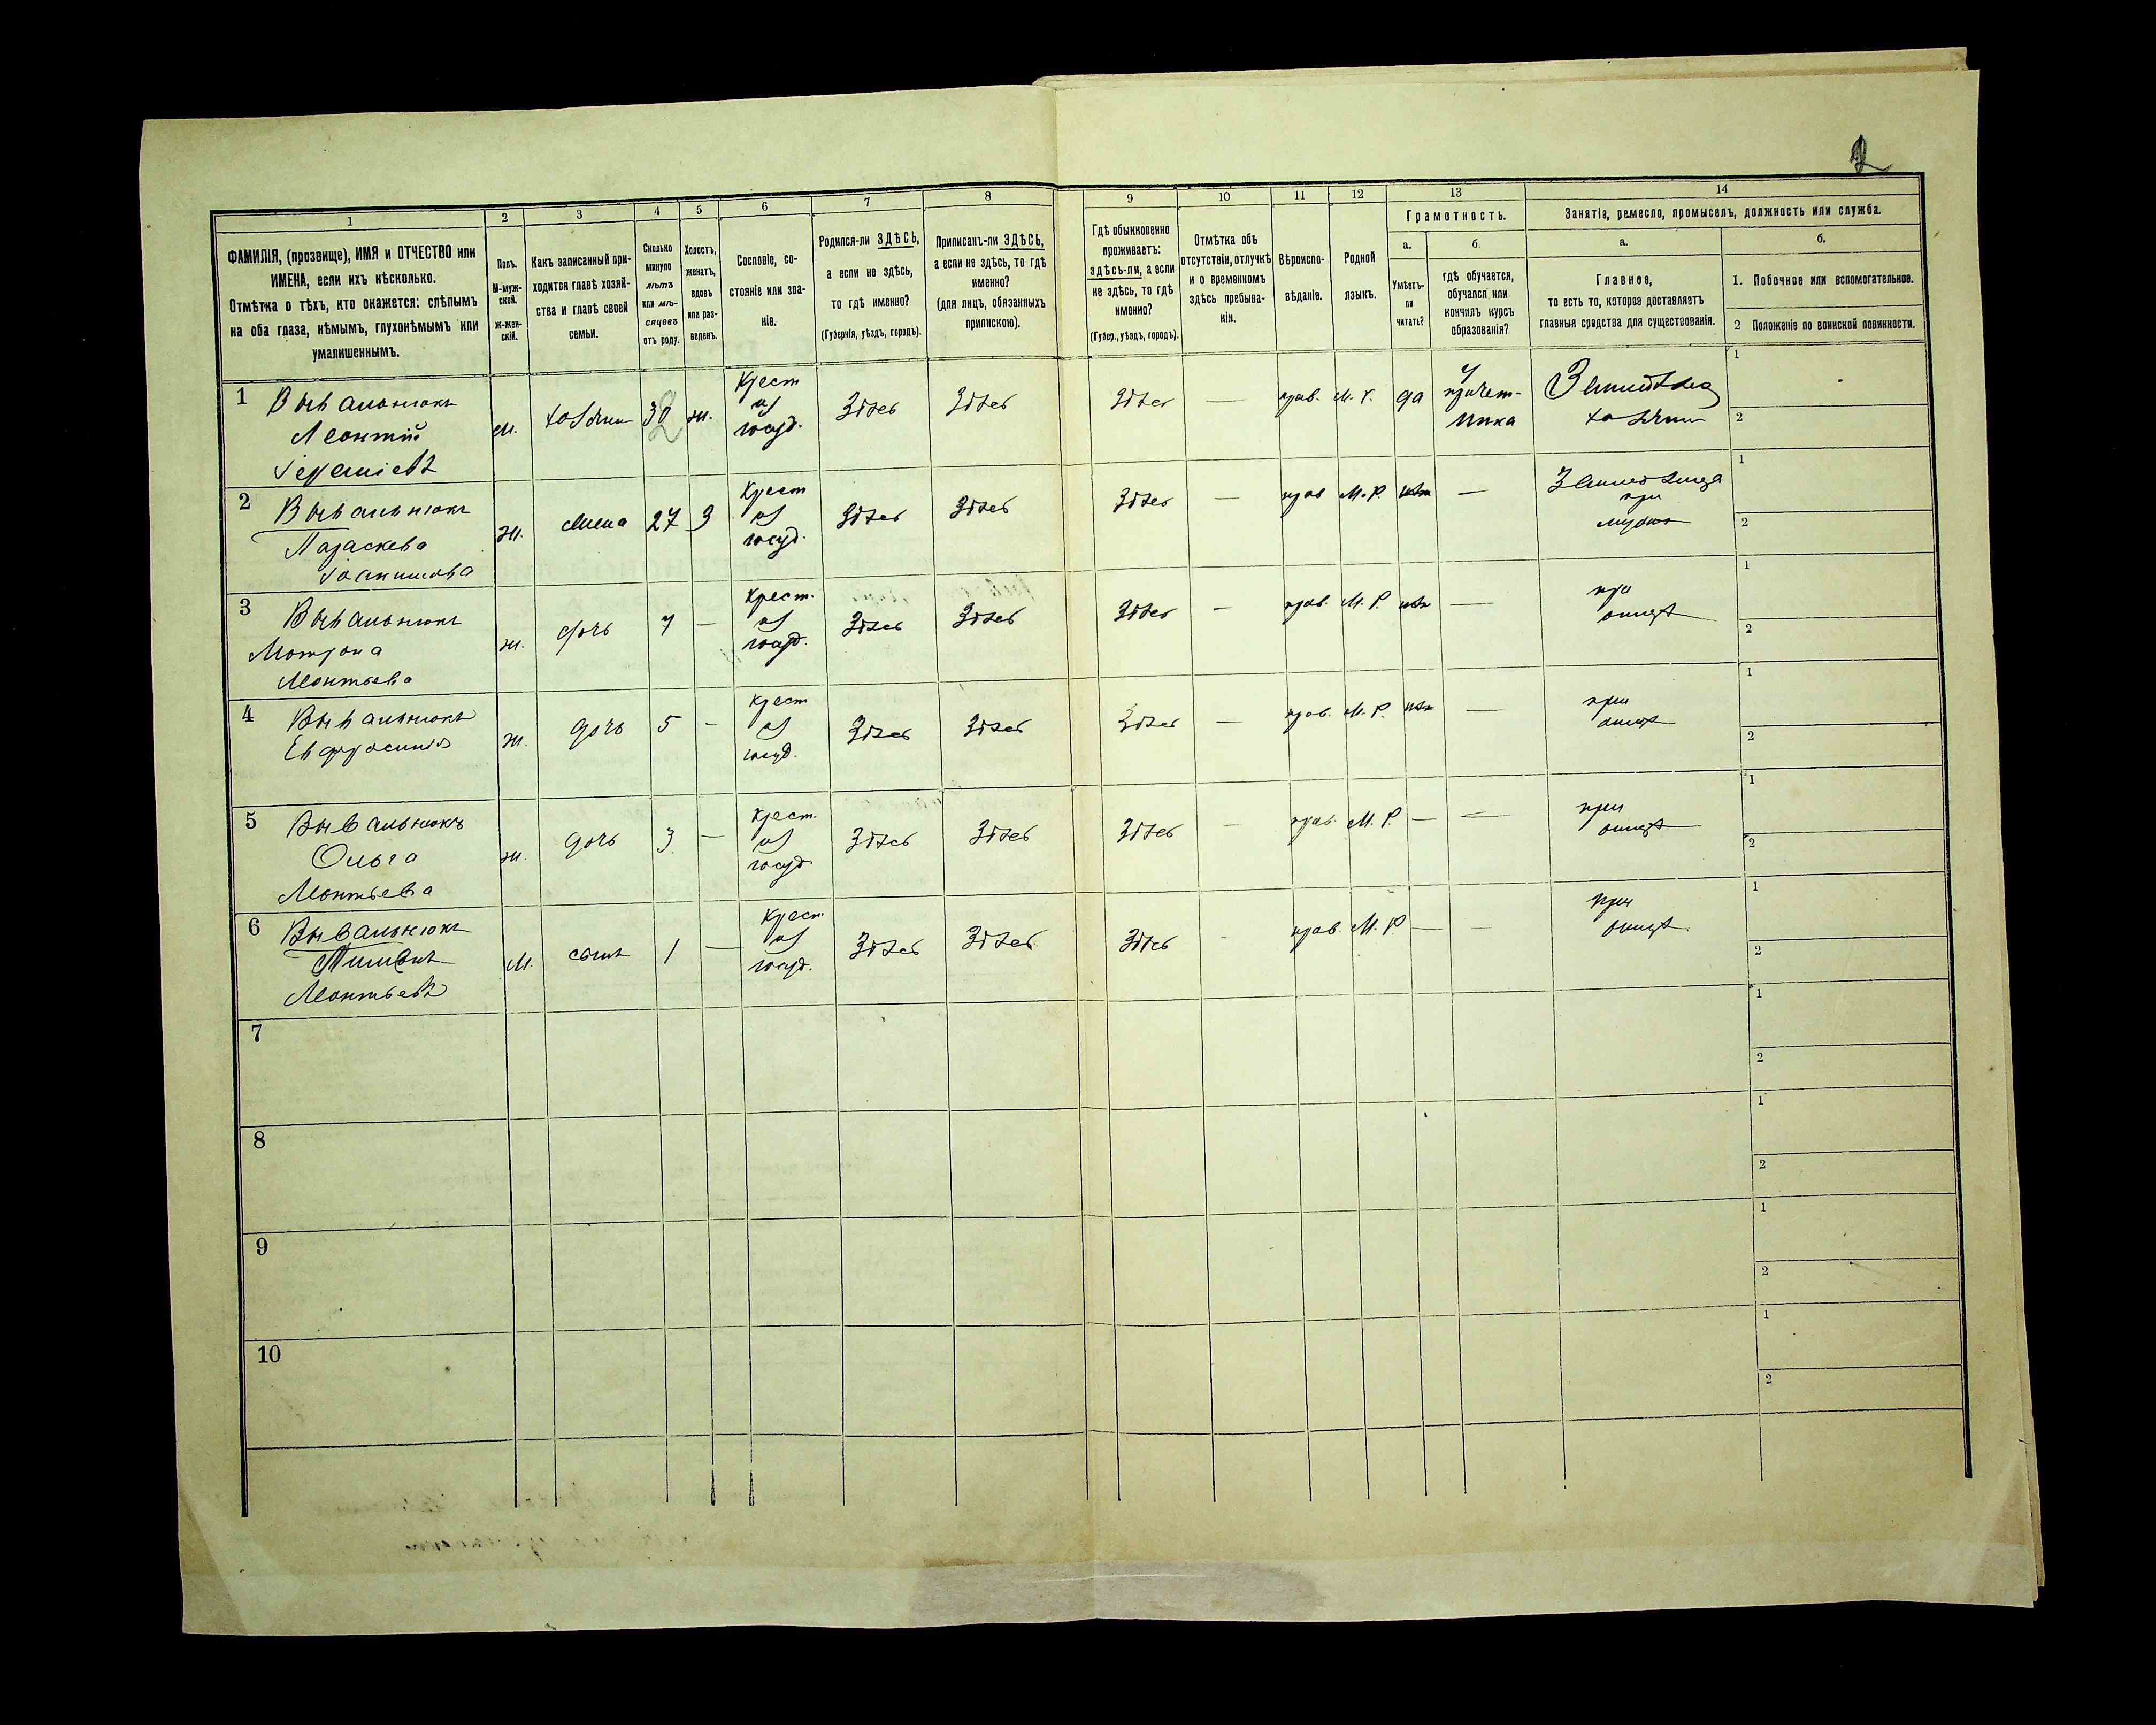 2
1 2 3 4 5 6 7 8 9 10 11 12 13 14
ФАМИЛІЯ, (прозвище), ИМЯ и ОТЧЕСТВО или
ИМЕНА, если ихъ нѣсколько.
Отмѣтка о тѣхъ, кто окажется: слѣпымъ
на оба глаза, нѣмымъ, глухонѣмымъ или
умалишеннымъ.
Полъ.
М-муж-
ской.
ж-жен-
скій.
Какъ записанный при-
ходится главѣ хозяй-
ства и главѣ своей
семьи.
Сколько
минуло
лѣтъ
или мѣ-
сяцевъ
отъ роду.
Холостъ,
женатъ,
вдовъ
или раз-
веденъ.
Сословіе, со-
стояніе или зва-
ніе.
Родился-ли ЗДѢСЬ,
а если не здѣсь,
то гдѣ именно?
(Губернія, уѣздъ, городъ).
Приписанъ-ли ЗДѢСЬ,
а если не здѣсь, то гдѣ
именно?
(для лицъ, обязанныхъ
припискою).
Гдѣ обыкновенно
проживаетъ:
здѣсь-ли, а если
не здѣсь, то гдѣ
именно?
(Губер., уѣздъ, городъ).
Отмѣтка объ
отсутствіи, отлучкѣ
и о временномъ
здѣсь пребыва-
ніи.
Вѣроиспо-
вѣданіе.
Родной
языкъ.
Грамотность.
а.
Умѣетъ-
ли
читать?
б.
гдѣ обучается,
обучался или
кончилъ курсъ
образованія?
Занятіе, ремесло, промыселъ, должность или служба.
а.
Главное,
то есть то, которое доставляетъ
главныя средства для существованія.
б.
1. Побочное или вспомогательное.
2 Положеніе по воинской повинности.
1 Вывальнюкъ
Леонтій
м. 32 ж.
Крест
из
госуд.
Здѣсь Здѣсь Здѣсь — прав. М. Р. да
у
причет-
ника
1
2
2 Вывальнюкъ
Параскева
Іоакимова
ж. жена 27 З
Крест
из
госуд.
Здѣсь Здѣсь Здѣсь — прав М. Р. нѣтъ —
при
мужѣ
1
2
3 Вывальнюкъ
Мотрона
Леонтьева
ж. дочь 7 —
Крест.
из
госуд.
Здѣсь Здѣсь Здѣсь — прав. М. Р. нѣтъ —
при
отцѣ
1
2
4 Вывальнюкъ
Евфросинія
ж. дочь 5 —
Крест
из
госуд.
Здѣсь Здѣсь Здѣсь — прав. М. Р. нѣтъ —
при
отцѣ
1
2
5 Вывальнюкъ
Ольга
Леонтьева
ж. дочь 3 —
Крест.
из
госуд
Здѣсь Здѣсь Здѣсь — прав. М. Р. — —
при
отцѣ
1
2
6 Вывальнюкъ
Леонтьевъ
м. сынъ 1 —
Крест.
из
госуд.
Здѣсь Здѣсь Здѣсь — прав. М. Р — —
при
отцѣ.
1
2
7
1
2
8
1
2
9
1
2
10
1
2